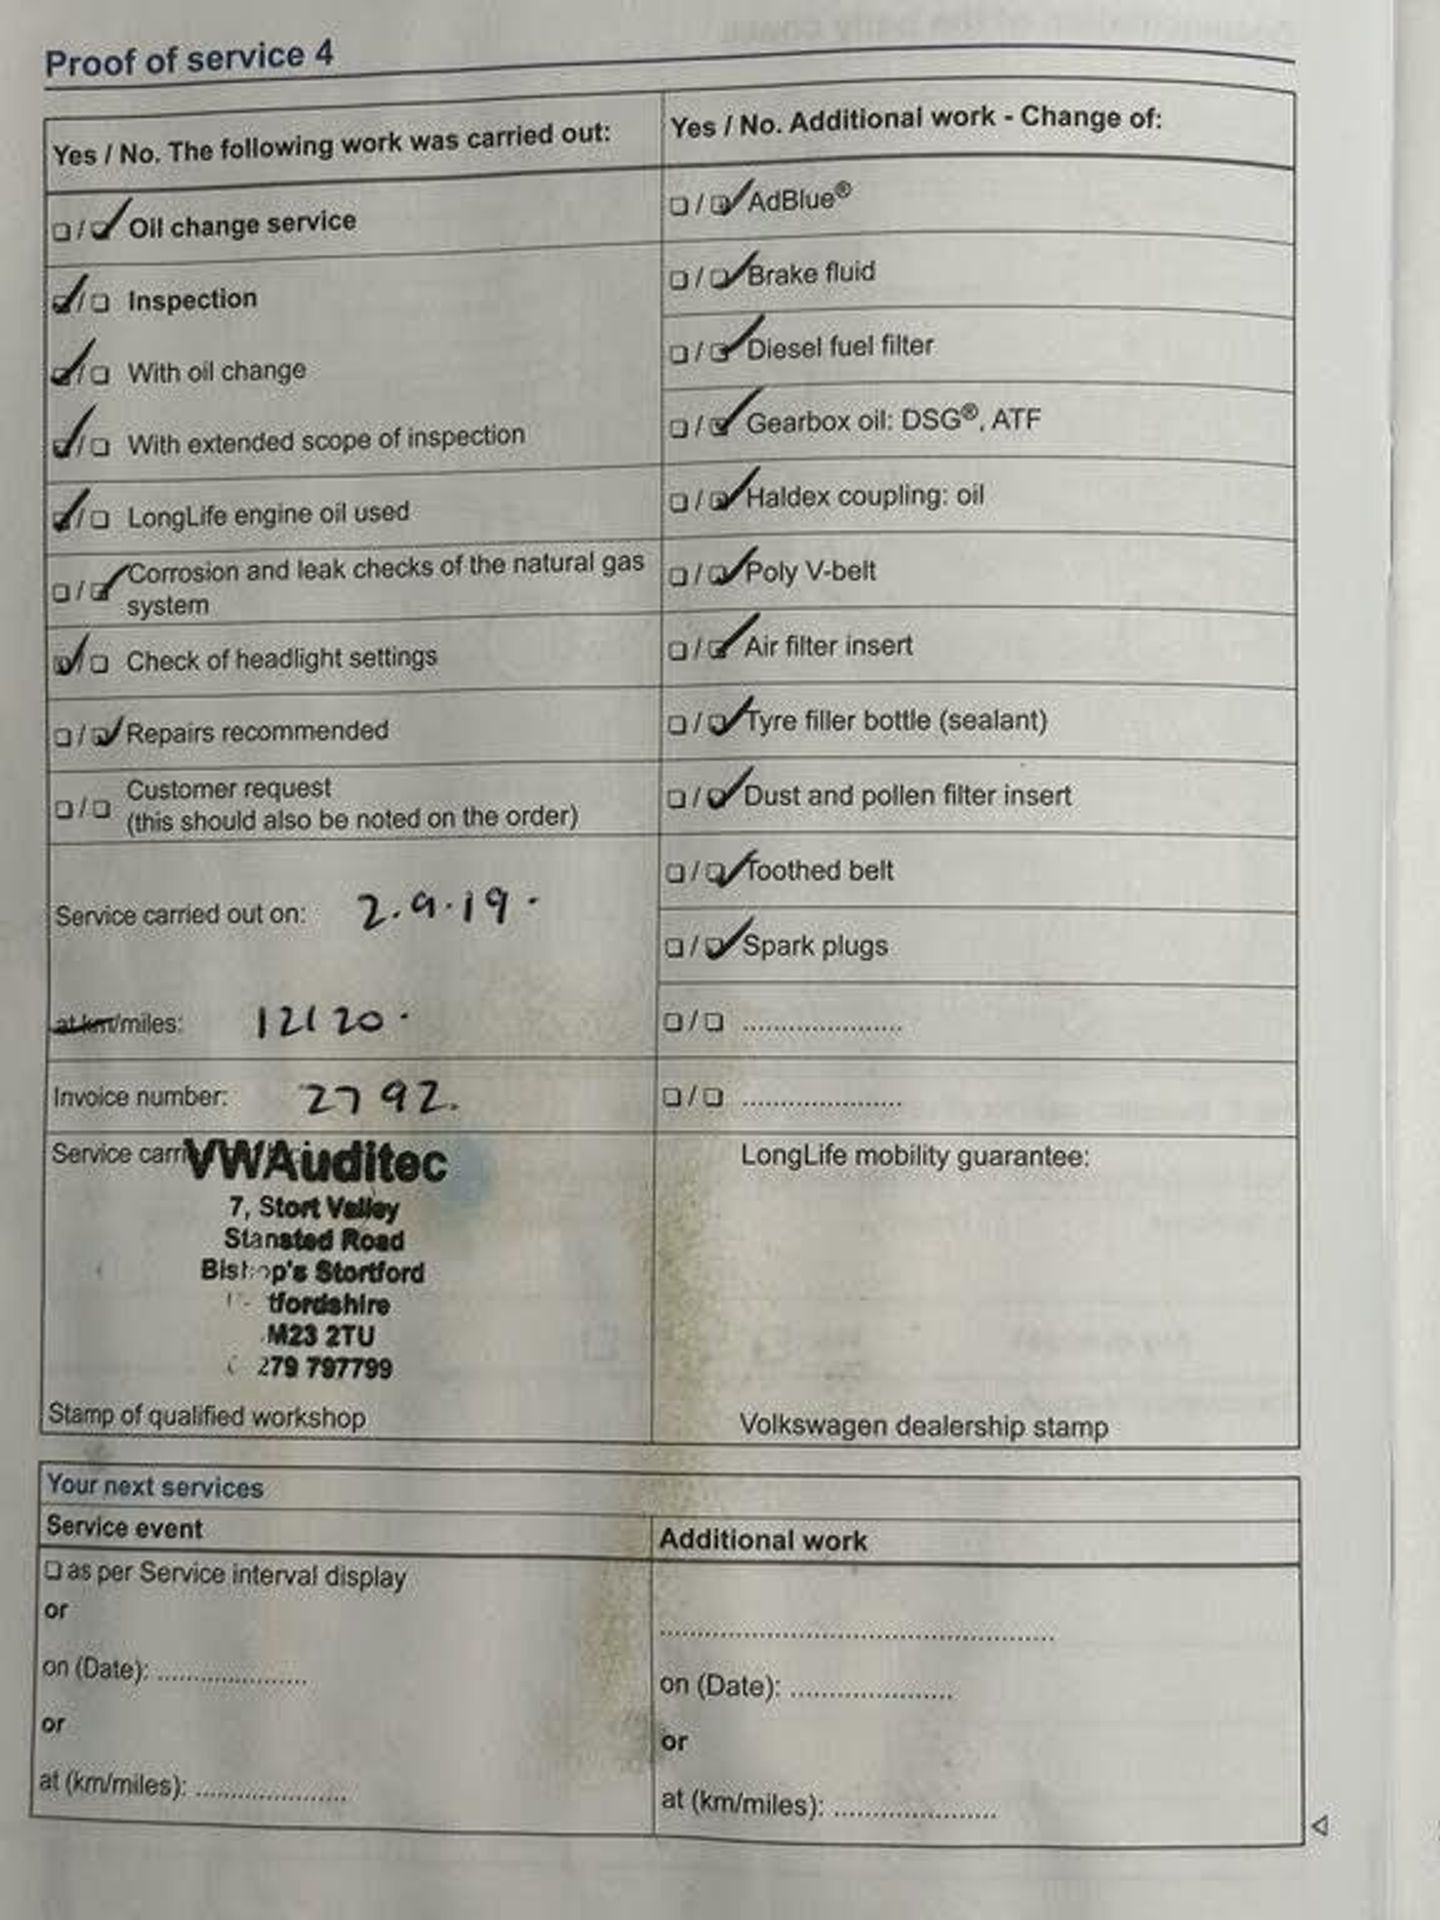 Proof of service 4
Yes / No. The following work was carried out:
❏ / ❏ Oil change service
❏ / ❏ Inspection
❏ / ❏ With oil change
❏ / ❏ With extended scope of inspection
❏ / ❏ LongLife engine oil used
❏ / ❏ Corrosion and leak checks of the natural gas
system
❏ / ❏ Check of headlight settings
❏ / ❏ Repairs recommended
❏ / ❏ Customer request
(this should also be noted on the order)
Service carried out on: 2.9.19.
at km/miles: 12120.
Invoice number: 2792.
Service carri
VWAuditec
7, Stort Valley
Stansted Road
Bishop's Stortford
tfordshire
M23 2TU
279 797799
Stamp of qualified workshop
Yes / No. Additional work - Change of:
❏ / ❏ AdBlue®
❏ / ❏ Brake fluid
❏ / ❏ Diesel fuel filter
❏ / ❏ Gearbox oil: DSG®, ATF
❏ / ❏ Haldex coupling: oil
❏ / ❏ Poly V-belt
❏ / ❏ Air filter insert
❏ / ❏ Tyre filler bottle (sealant)
❏ / ❏ Dust and pollen filter insert
❏ / ❏ Toothed belt
❏ / ❏ Spark plugs
❏ / ❏ ......................
❏ / ❏ ......................
LongLife mobility guarantee:
Volkswagen dealership stamp
Your next services
Service event
❏ as per Service interval display
or
on (Date): ......................
or
at (km/miles): ......................
Additional work
......................................................
on (Date): ......................
or
at (km/miles): ......................